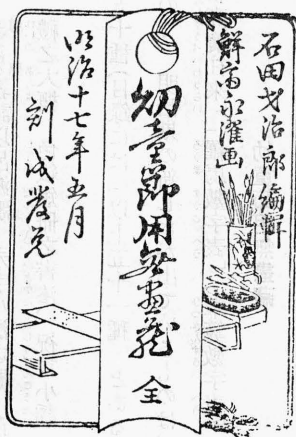 石田才治郎編輯
鮮斎永濯画
幼童節用無尽蔵 全
明治十七年五月
刻成発兌